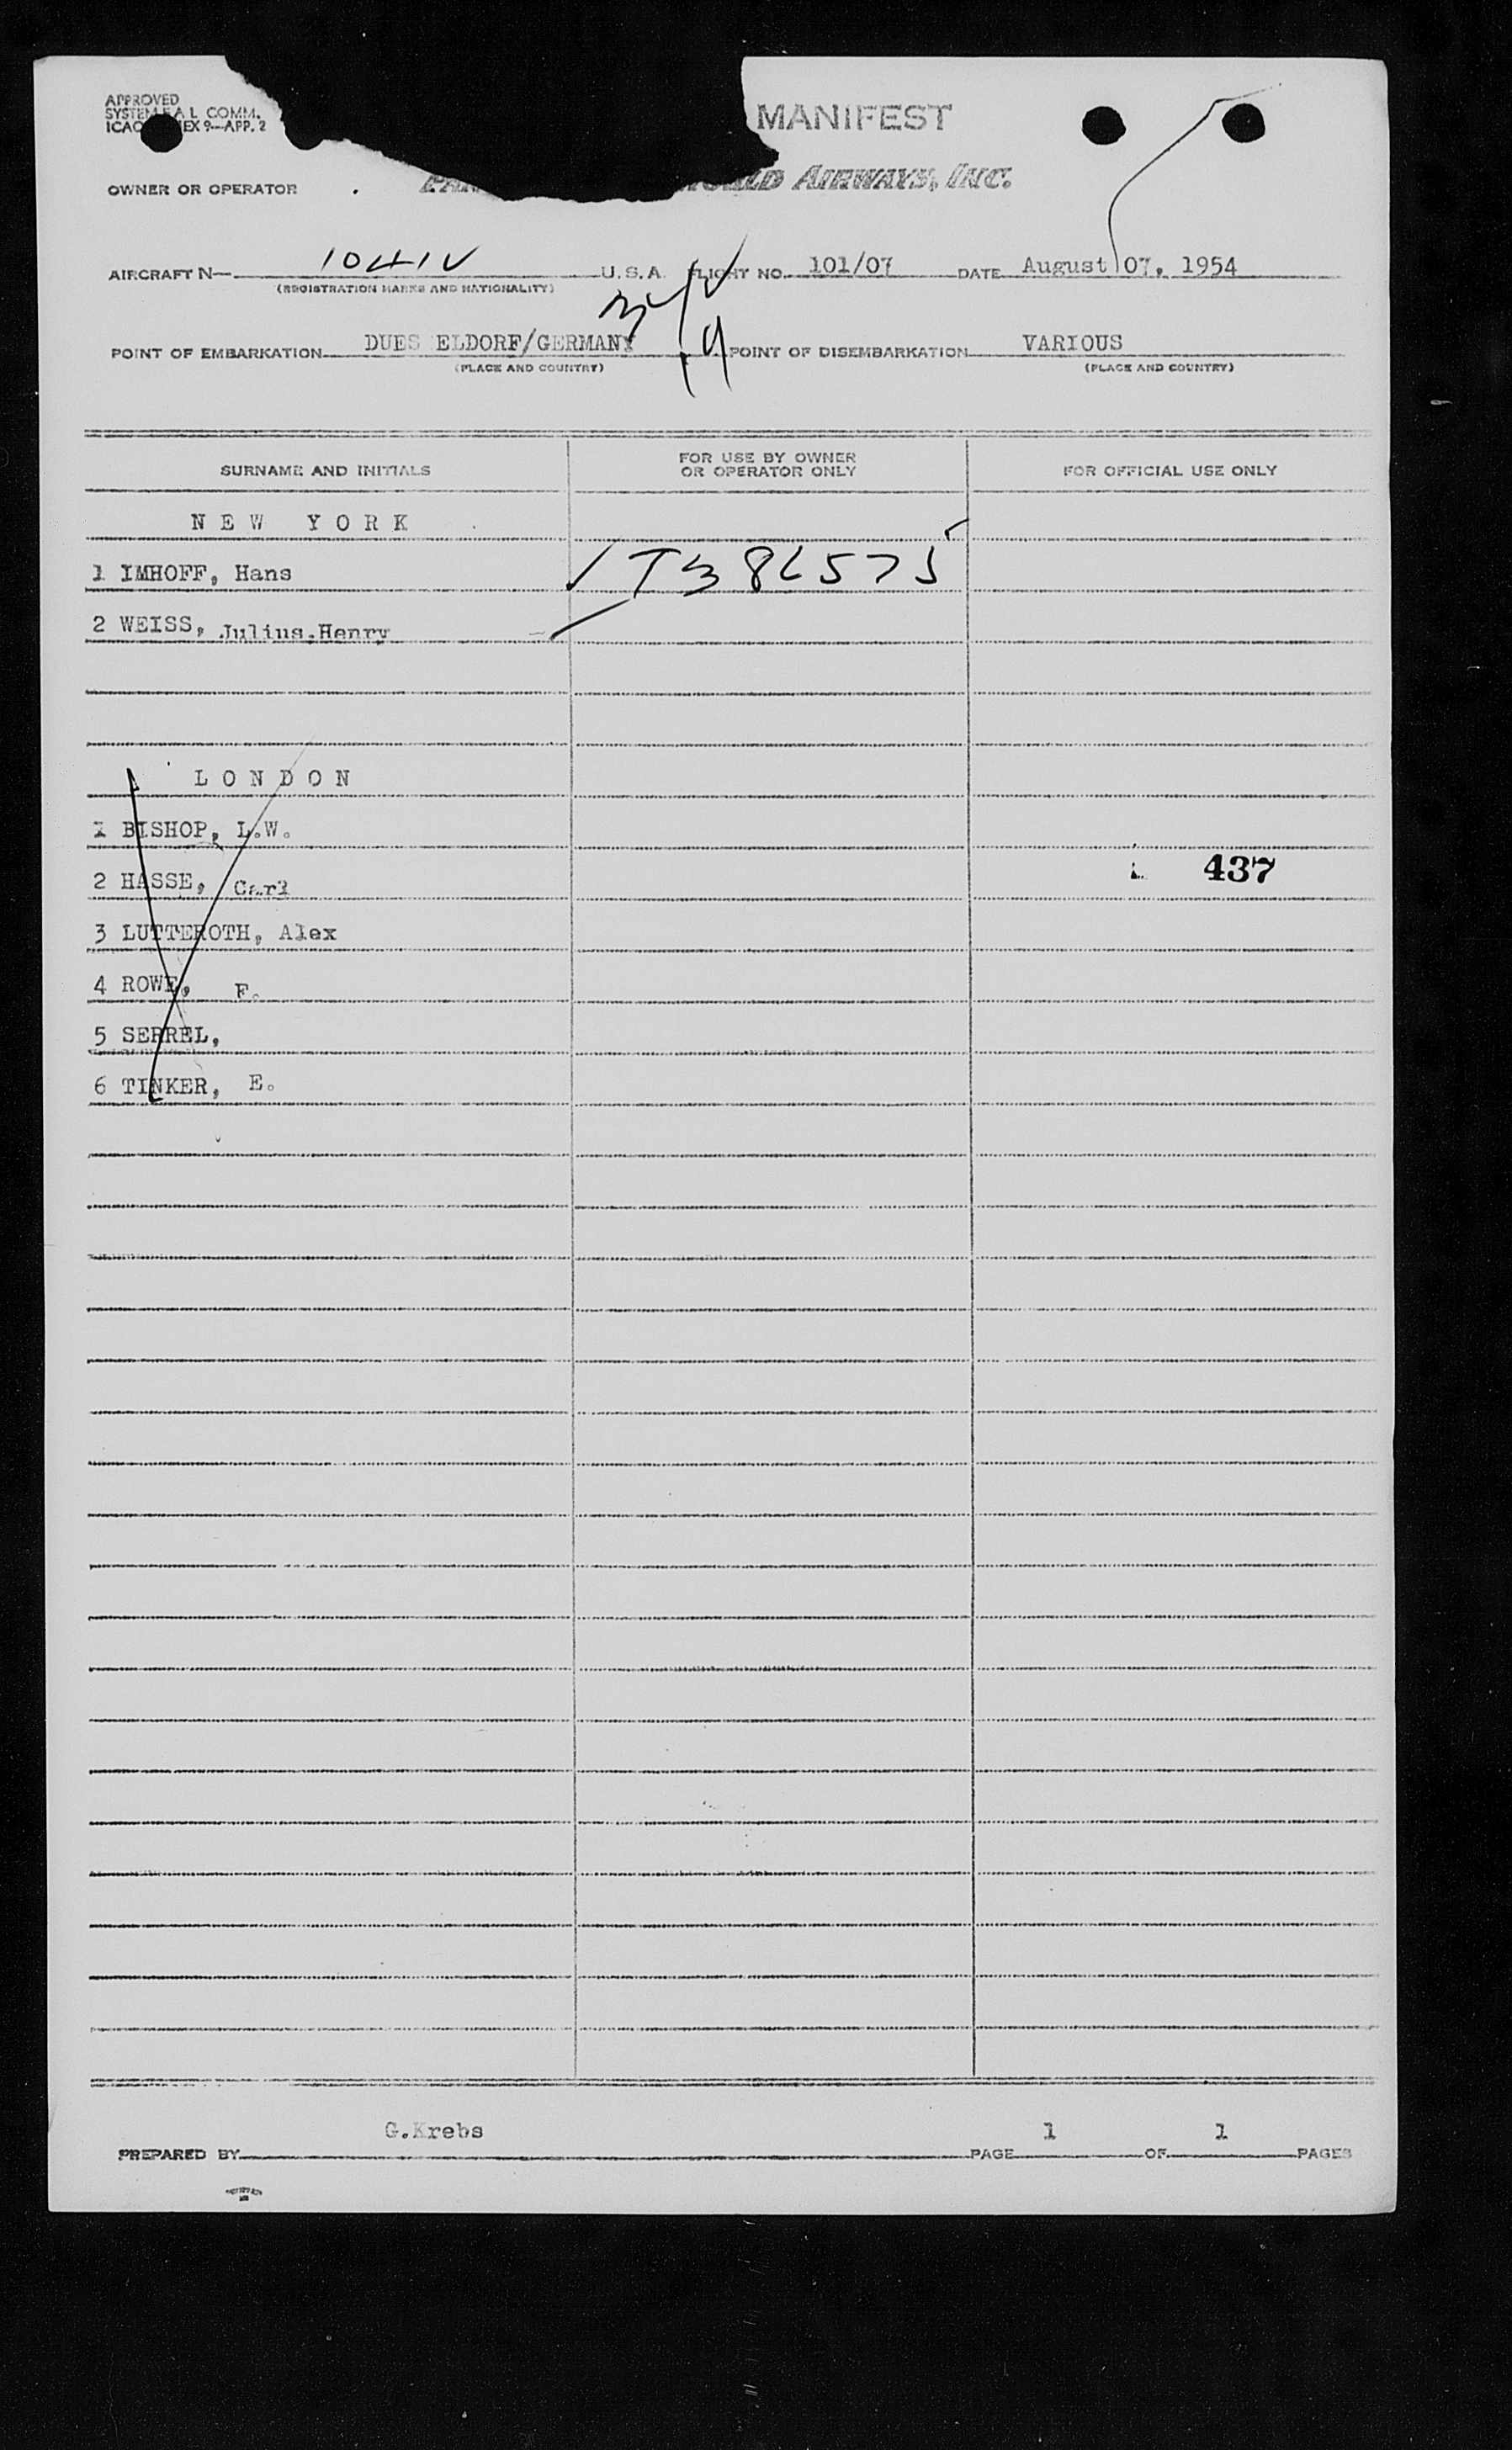 APPROVED
SYSTEM F A L COMM.
ICAO EX 9—APP. 2
MANIFEST
OWNER OR OPERATOR
PAN WORLD AIRWAYS, INC.
AIRCRAFT N— 1041V U. S. A. FLIGHT NO. 101/07 DATE August 07, 1954
(REGISTRATION MARKS AND NATIONALITY)
POINT OF EMBARKATION DUES ELDORF/GERMANY POINT OF DISEMBARKATION VARIOUS
(PLACE AND COUNTRY) (PLACE AND COUNTRY)
SURNAME AND INITIALS FOR USE BY OWNER OR OPERATOR ONLY FOR OFFICIAL USE ONLY
N E W Y O R K
1 IMHOFF, Hans T386575
2 WEISS, Julius.Henry
L O N D O N
1 BISHOP, L.W.
2 HASSE, Carl 437
3 LUTTEROTH, Alex
4 ROWE, F.
5 SERREL,
6 TINKER, E.
G.Krebs 1 1
PREPARED BY PAGE OF PAGES